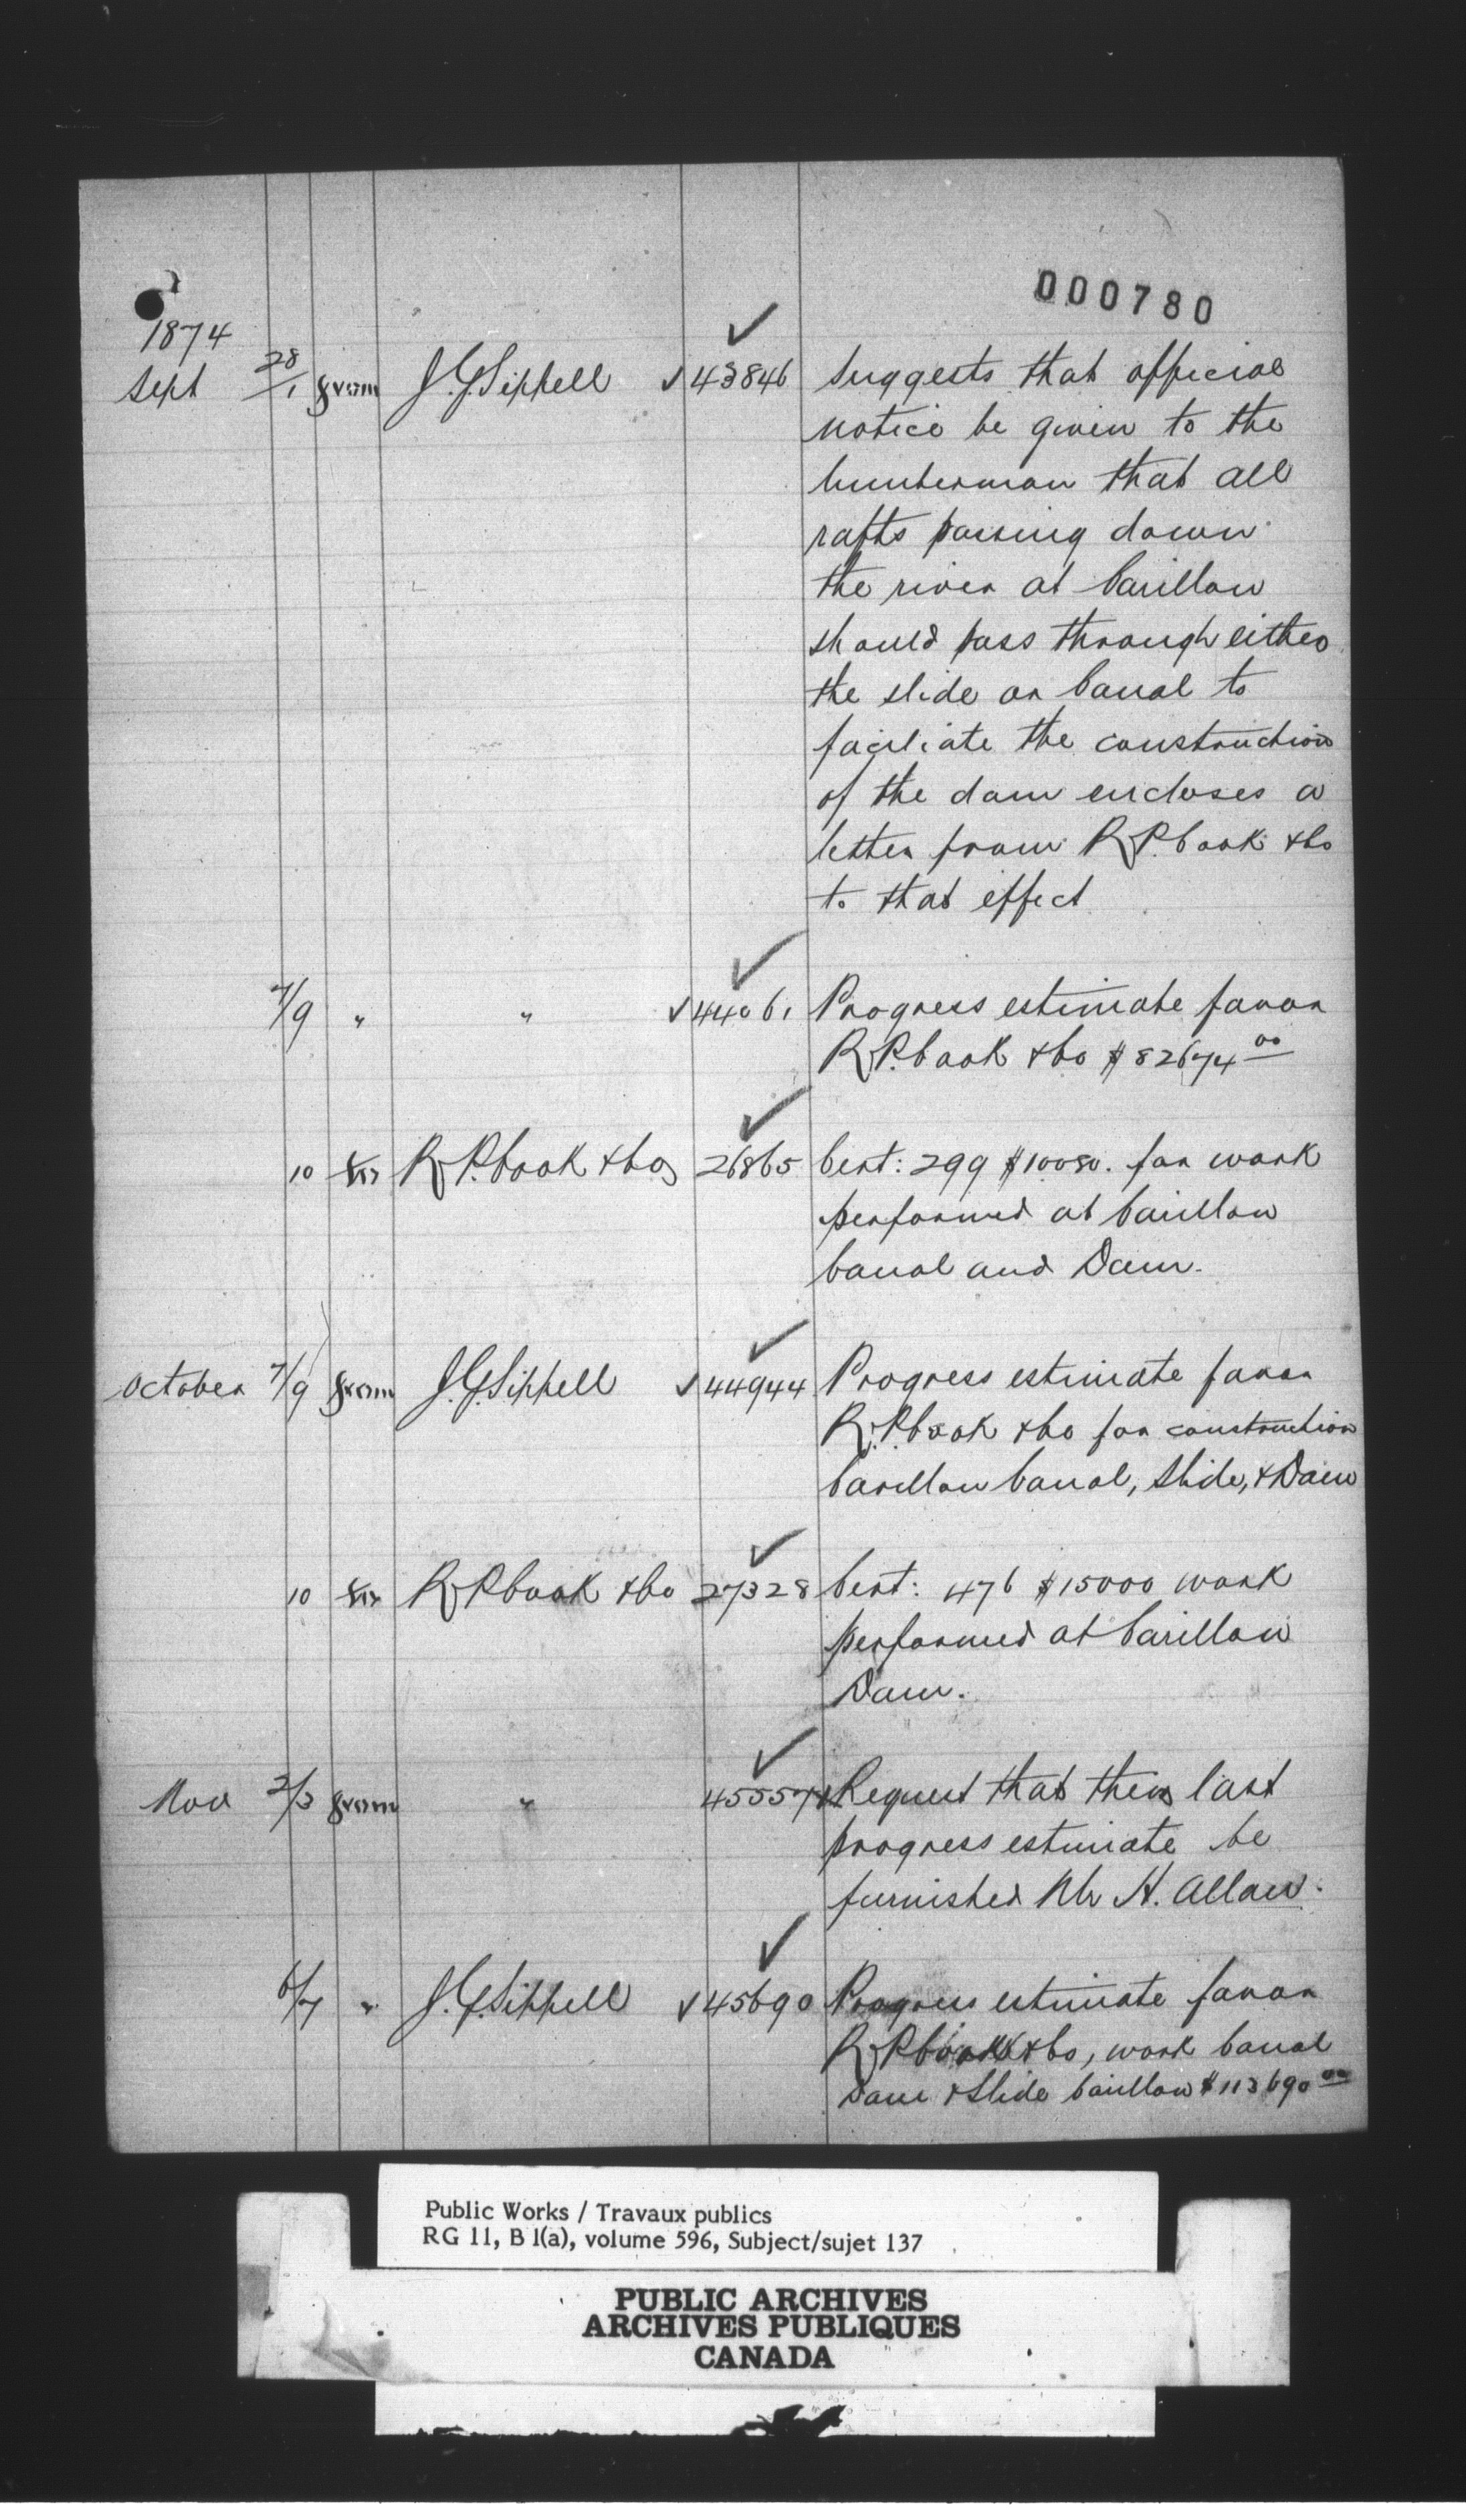 000780
1874
Sept 28/1 from J.G. Sippell 43846 Suggests that official
notice be given to the
lumberman that all
rafts passing down
the river at Carillon
should pass through either
the slide or Canal to
faciliate the construction
of the dam encloses a
letter from R.P. Cook & Co
to that effect
7/9 " " 44061 Progress estimate favor
R.P. Cook & Co $82674 00
10 R.P. Cook & Co 26865 Cert: 299 $10080. for work
performed at Carillon
Canal and Dam.
October 7/9 from J.G. Sippell 44944 Progress estimate favor
R.P. Cook & Co for construction
Carillon Canal, Slide, & Dam
10 R.P. Cook & Co 27328 Cert: 476 $15000 work
performed at Carillon
Dam.
Nov 2/3 from " 45557 Request that their last
progress estimate be
furnished Mr H. Allan.
6/7 " J.G. Sippell 45690 Progress estimate favor
R.P. Cook & Co, work Canal
Dam & Slide Carillon $113690 00
Public Works / Travaux publics
RG 11, B 1(a), volume 596, Subject/sujet 137
PUBLIC ARCHIVES
ARCHIVES PUBLIQUES
CANADA